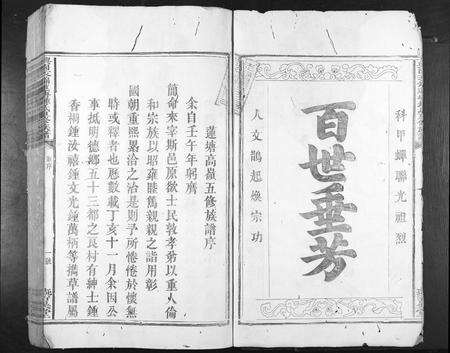 百世垂芳
科甲蟬聯光祖烈
人文鵲起煥宗功
蓮塘高嶺五修族譜序
余自壬午年躬膺
簡命來宰斯邑原欲士民敦孝弟以重人倫
和宗族以昭雍睦篤親親之誼用彰
國朝重熙累洽之治是則予所惓惓於懷無
時或釋者也歷數載丁亥十一月余因公
事抵明德鄉五十三都之良村有紳士鍾
香桐鍾汝禧鍾文光鍾萬柄等攜草譜屬